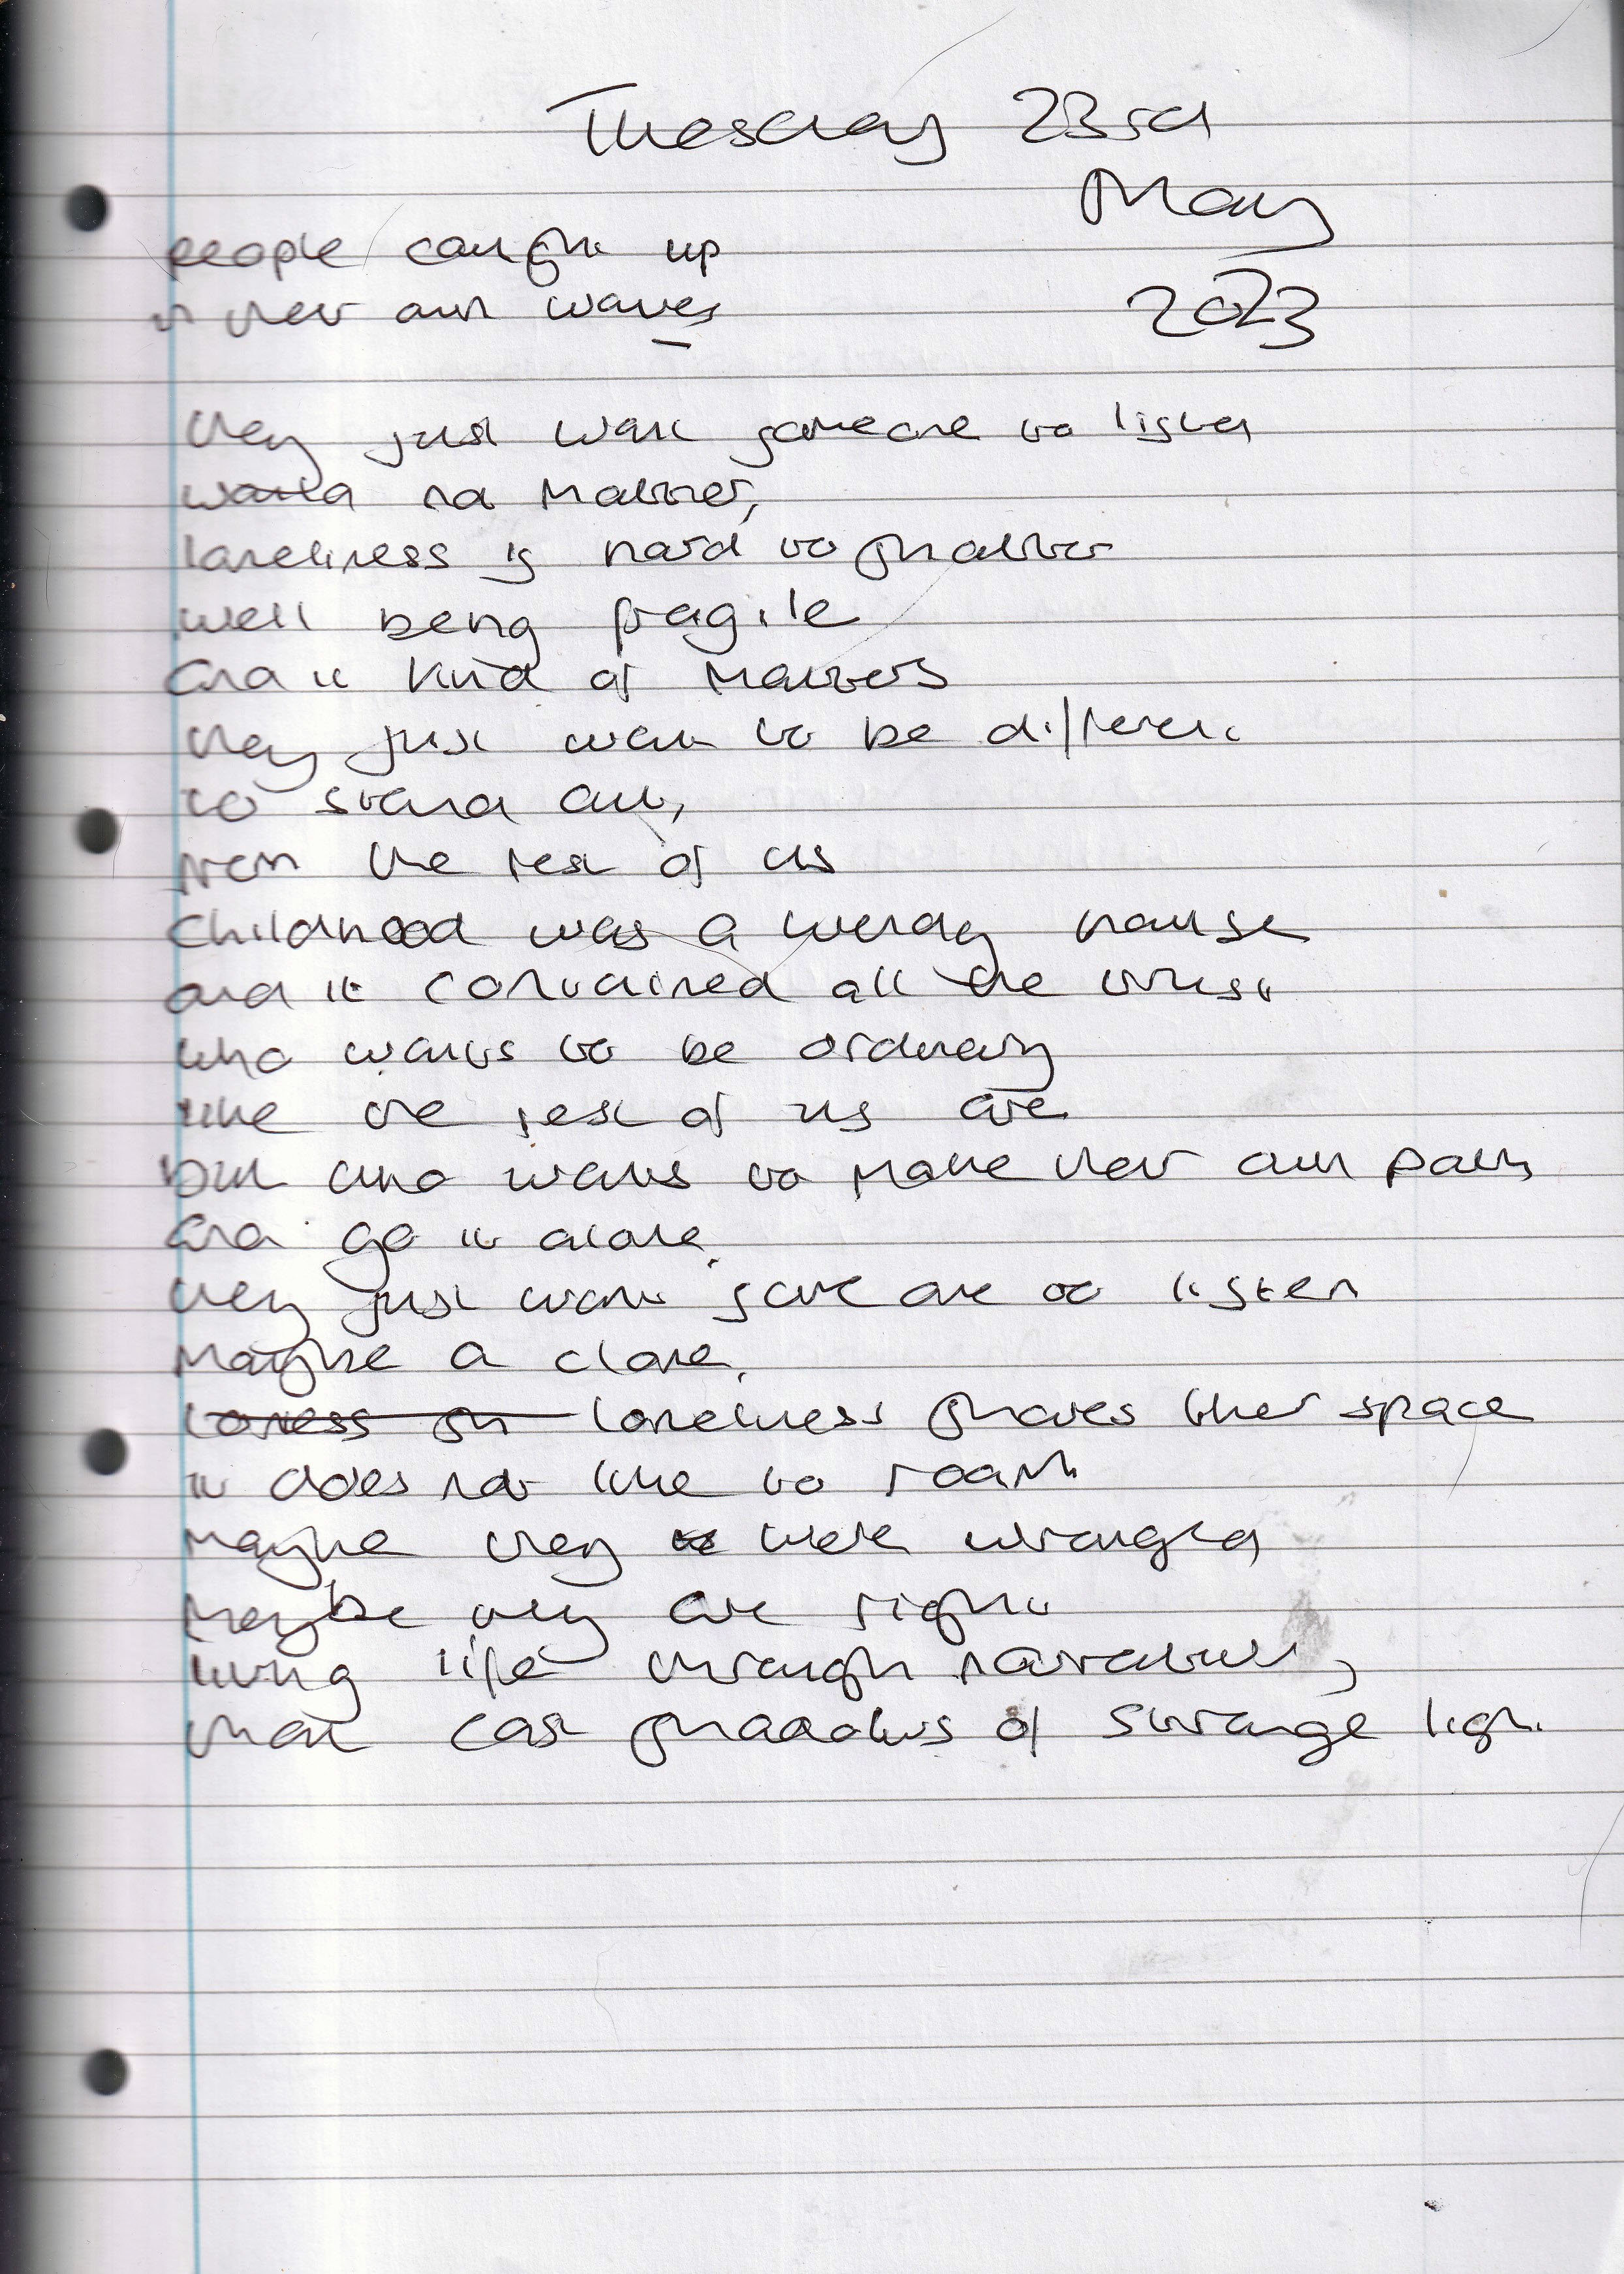 Tuesday 23rd
May
2023
people caught up
in their own waves
they just want someone to listen
wanna na matter,
loneliness is hard to shatter
well being fragile
and it kind of matters
they just want to be different
to stand out,
from the rest of us
Childhood was a wendy house
and it contained all the trust
who wants to be ordinary
like the rest of us are
but who wants to make their own path
and go it alone.
they just want some one to listen
maybe a clone.
loneliness shares their space
it does not like to roam
maybe they were wronged
maybe they are right
living life through narrative,
that cast shadows of strange light